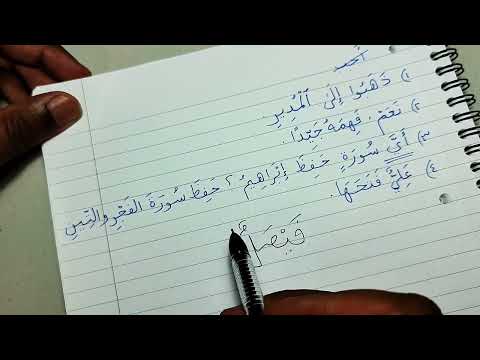 ١) ذَهَبُوا إِلَى الْمُدِيرِ.
٢) نَعَمْ، فَهِمَهُ جَيِّدًا.
٣) أَيَّ سُورَةٍ حَفِظَ إِبْرَاهِيمُ؟ حَفِظَ سُورَةَ الفَجْرِ والتِّينِ
٤) عَلِيٌّ فَتَحَهَا.
فَيْصَلُ